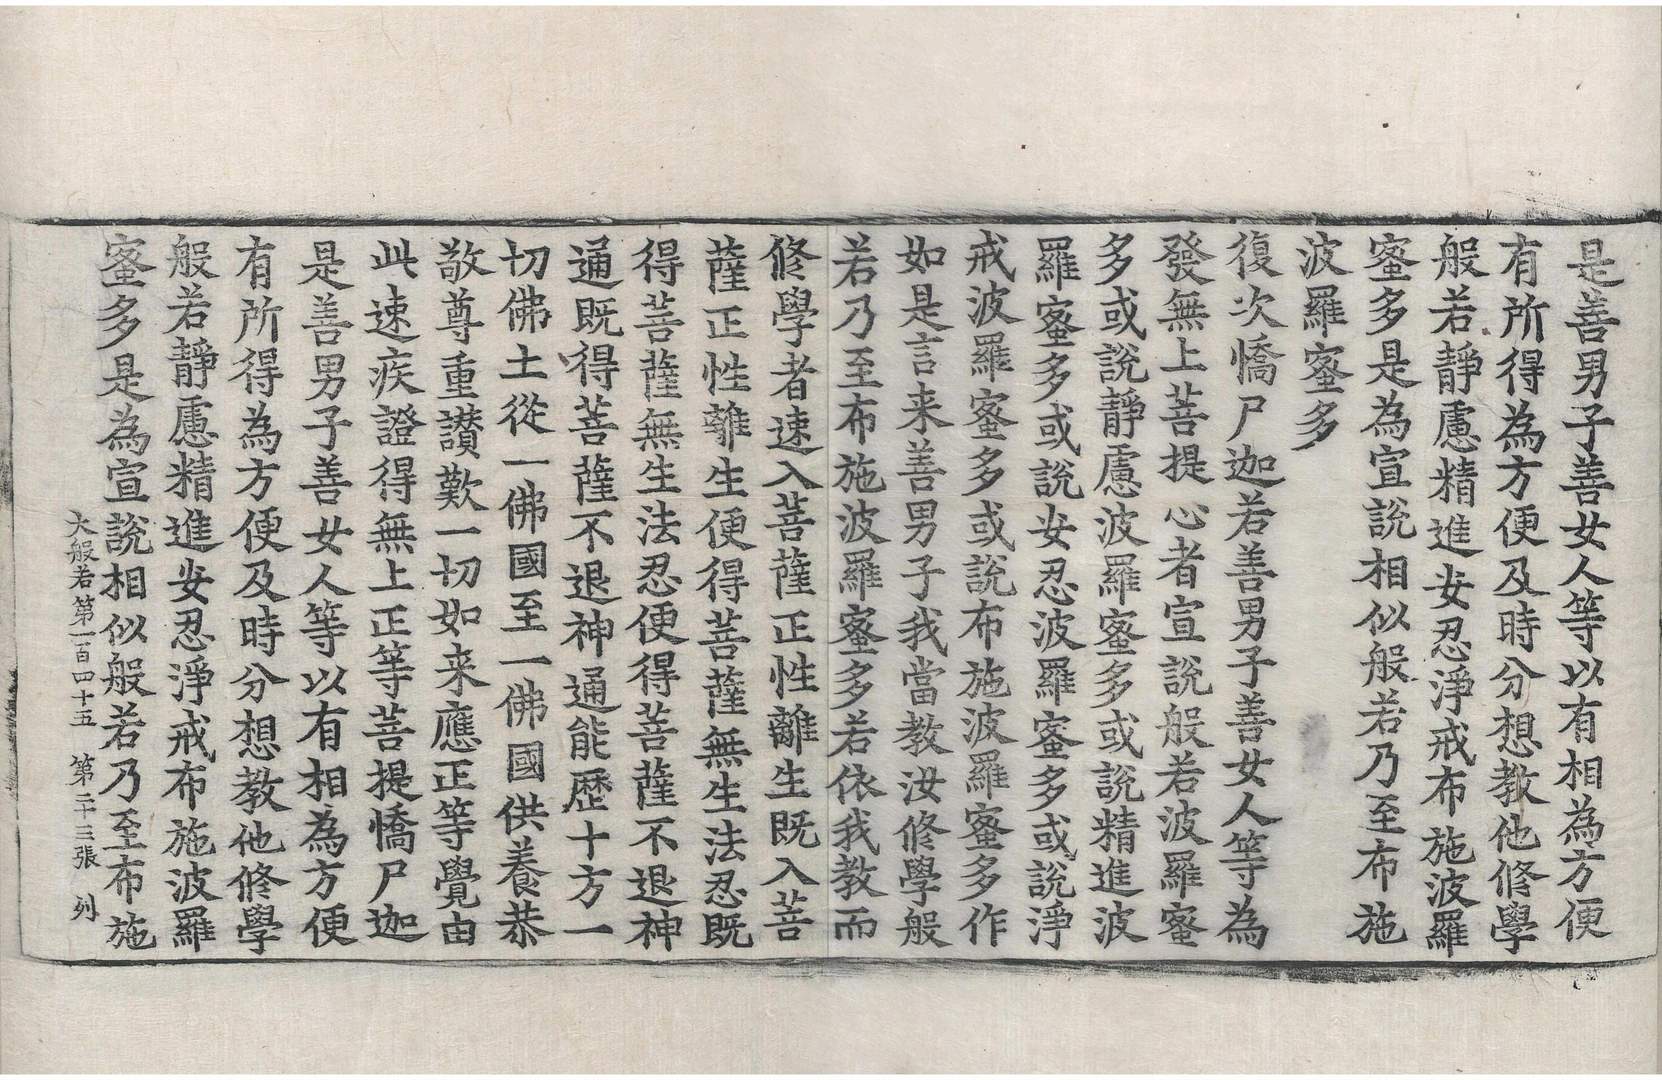 是善男子善女人等以有相為方便
有所得為方便及時分想教他修學
般若靜慮精進安忍淨戒布施波羅
蜜多是為宣說相似般若乃至布施
波羅蜜多
復次憍尸迦若善男子善女人等為
發無上菩提心者宣說般若波羅蜜
多或說靜慮波羅蜜多或說精進波
羅蜜多或說安忍波羅蜜多或說淨
戒波羅蜜多或說布施波羅蜜多作
如是言来善男子我當教汝修學般
若乃至布施波羅蜜多若依我教而
修學者速入菩薩正性離生既入菩
薩正性離生便得菩薩無生法忍既
得菩薩無生法忍便得菩薩不退神
通既得菩薩不退神通能歷十方一
切佛土從一佛國至一佛國供養恭
敬尊重讚歎一切如来應正等覺由
此速疾證得無上正等菩提憍尸迦
是善男子善女人等以有相為方便
有所得為方便及時分想教他修學
般若靜慮精進安忍淨戒布施波羅
蜜多是為宣說相似般若乃至布施
大般若第一百四十五 第二十三張 列